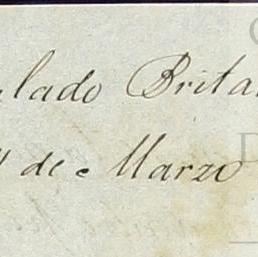 lado Brita
de Marzo